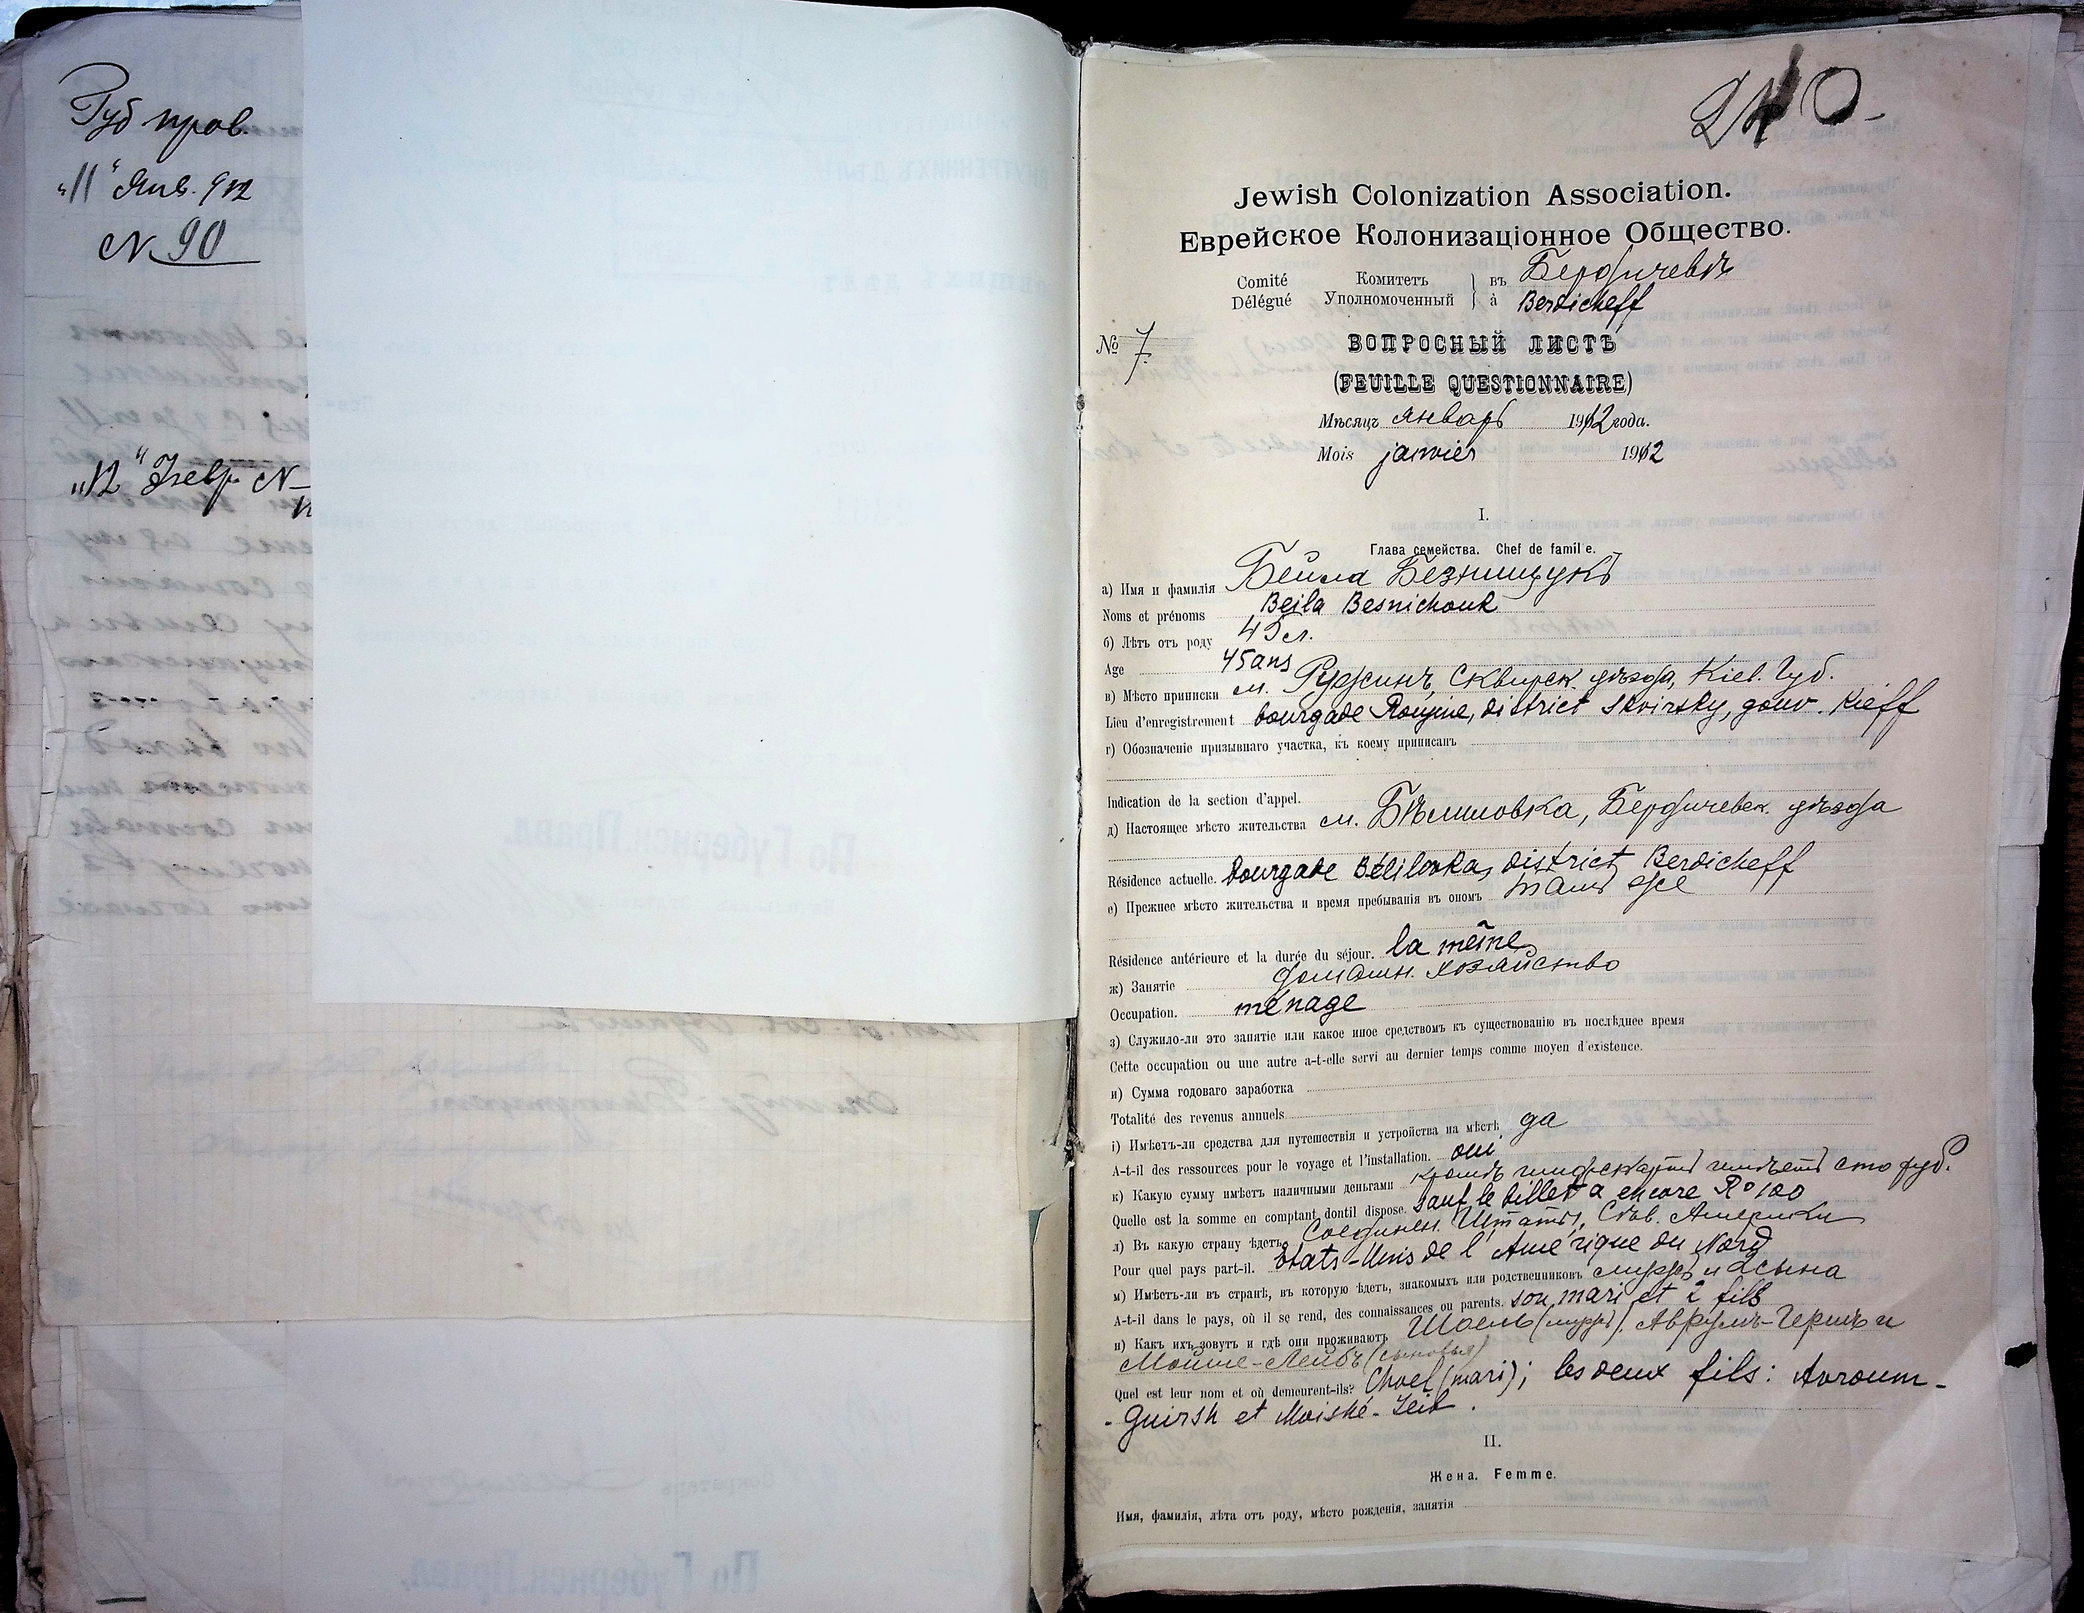 Губ прав.
"11" Янв. 912
N 90
"12" Февр. N
240-
Jewish Colonization Association.
Еврейское Колонизаціонное Общество.
Comité Комитетъ въ Бердичевѣ
Délégué Уполномоченный à Berdicheff
№ 7
ВОПРОСНЫЙ ЛИСТЪ
(FEUILLE QUESTIONNAIRE)
Мѣсяцъ январь 1912 года.
Mois janvier 1912
I.
Глава семейства. Chef de famil e.
а) Имя и фамилія Бейла Безнищукъ
Noms et prénoms Beila Besnichouk
б) Лѣтъ отъ роду 45 л.
Age 45 ans
в) Мѣсто приписки м. Ружинъ, Сквирск. уѣзда, Кіев. Губ.
Lieu d'enregistrement bourgade Roujine, district Skvirsky, gouv. Kieff
г) Обозначеніе призывнаго участка, къ коему приписанъ
Indication de la section d'appel.
д) Настоящее мѣсто жительства м. Бѣлиловка, Бердичевск. уѣзда
Résidence actuelle. bourgade Bélilovka, district Berdicheff
е) Прежнее мѣсто жительства и время пребыванія въ ономъ тамъ же
Résidence antérieure et la durée du séjour. la même
ж) Занятіе домашн. хозяйство
Occupation. ménage
з) Служило-ли это занятіе или какое иное средствомъ къ существованію въ послѣднее время
Cette occupation ou une autre a-t-elle servi au dernier temps comme moyen d'existence.
и) Сумма годоваго заработка
Totalité des revenus annuels
і) Имѣетъ-ли средства для путешествія и устройства на мѣстѣ да
A-t-il des ressources pour le voyage et l'installation. oui
к) Какую сумму имѣетъ наличными деньгами кромѣ шифскарты имѣетъ сто руб.
Quelle est la somme en comptant dontil dispose. Sauf le billet a encore Ro 100
л) Въ какую страну ѣдетъ Соединен. Штаты, Сѣв. Америки
Pour quel pays part-il. Etats-Unis de l'Amérique du Nord
м) Имѣетъ-ли въ странѣ, въ которую ѣдетъ, знакомыхъ или родственниковъ мужъ и 2 сына
A-t-il dans le pays, où il se rend, des connaissances ou parents. son mari et 2 fils
н) Какъ ихъ зовутъ и гдѣ они проживаютъ Шоель (мужъ), Аврумъ-Гершъ и
Мойше-Лейбъ (сыновья)
Quel est leur nom et où demeurent-ils? Choel (mari); les deux fils: Avroum-
-Guirsh et Moishé-Leib.
II.
Жена. Femme.
Имя, фамилія, лѣта отъ роду, мѣсто рожденія, занятія